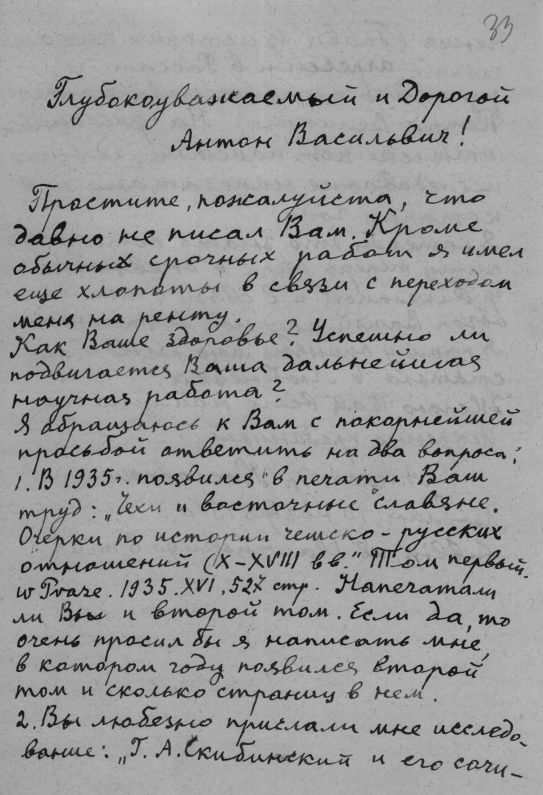 33
Глубокоуважаемый и Дорогой
Антон Васильвич!
Простите, пожалуйста, что
давно не писал Вам. Кроме
обычных срочных работ я имел
еще хлопоты в связи с переходом
меня на ренту.
Как Ваше здоровье? Успешно ли
подвигается Ваша дальнейшая
научная работа?
Я обращаюсь к Вам с покорнейшей
просьбой ответить на два вопроса:
1. В 1935 г. появился в печати Ваш
труд: „Чехи и восточные славяне.
Очерки по истории чешско-русских
отношений (X-XVIII вв.“ Том первый.
w Praze. 1935. XVI, 527 стр. Напечатали
ли Вы и второй том. Если да, то
очень просил бы я написать мне,
в котором году появился второй
том и сколько страниц в нем.
2. Вы любезно прислали мне исследо-
вание: „Г. А. Скибинский и его сочи-